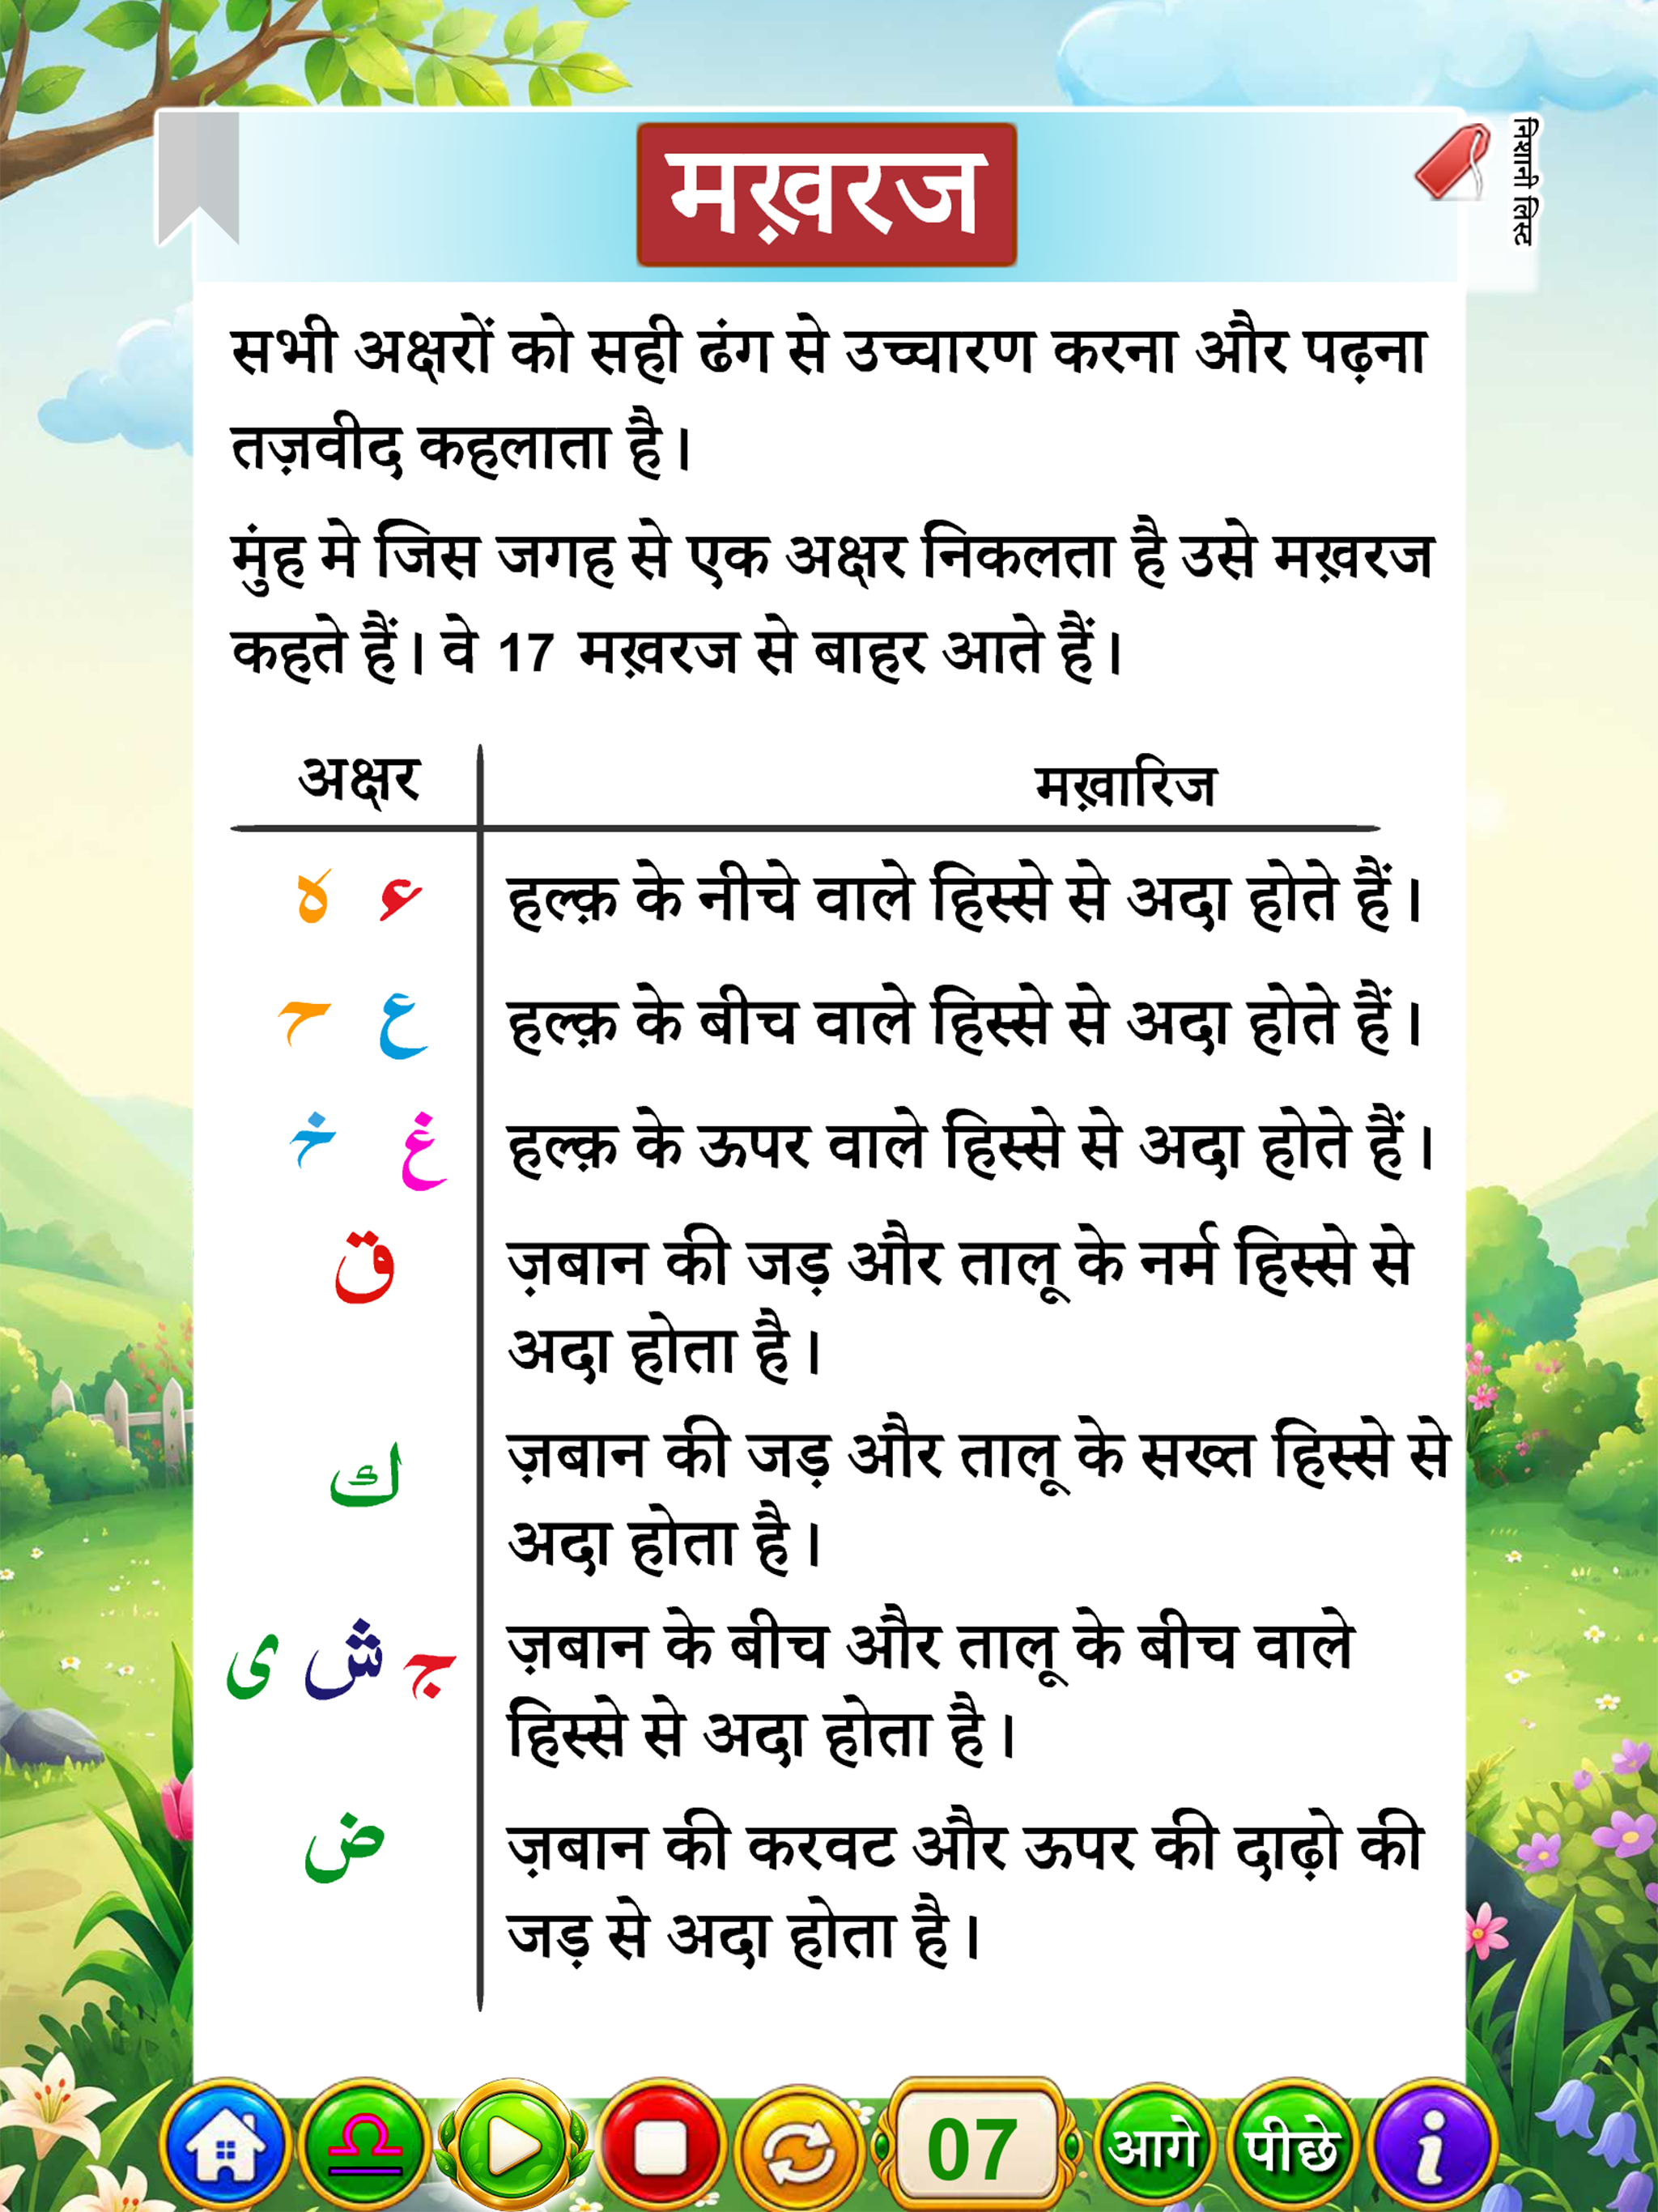 मख़रज
निशानी लिस्ट
सभी अक्षरों को सही ढंग से उच्चारण करना और पढ़ना
तज़वीद कहलाता है।
मुंह मे जिस जगह से एक अक्षर निकलता है उसे मख़रज
कहते हैं। वे 17 मख़रज से बाहर आते हैं।
अक्षर मख़ारिज
ء ہ हल्क़ के नीचे वाले हिस्से से अदा होते हैं।
ع ح हल्क़ के बीच वाले हिस्से से अदा होते हैं।
غ خ हल्क़ के ऊपर वाले हिस्से से अदा होते हैं।
ق ज़बान की जड़ और तालू के नर्म हिस्से से
अदा होता है।
ك ज़बान की जड़ और तालू के सख्त हिस्से से
अदा होता है।
ج ش ى ज़बान के बीच और तालू के बीच वाले
हिस्से से अदा होता है।
ض ज़बान की करवट और ऊपर की दाढ़ो की
जड़ से अदा होता है।
07 आगे पीछे i